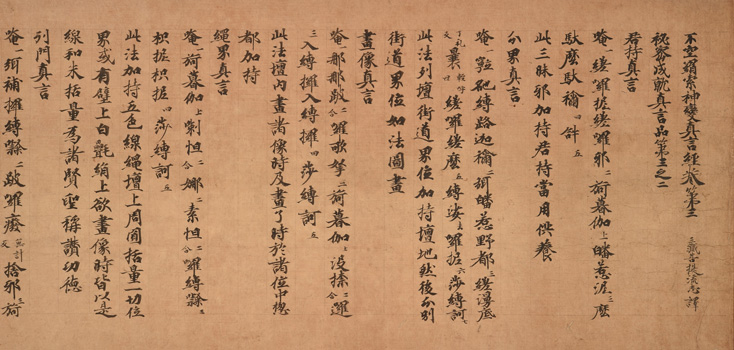 不空羂索神變真言經卷第三 三藏菩提流志譯
祕密成就真言品第三之二
君持真言
唵一縒囉捉縒囉邪二荷暮伽上皤惹泥三麼
馱麼馱䄍四𤙖五
此三昧邪加持君持當用供養
分界真言
唵一縛路迦䄍二弭皤惹野都三縒漫底
丁禮反曩輕呼縒囉縒麼五縛娑上囉捉六莎縛訶七
此法列壇街道界位加持壇地然後分別
街道界位如法圖畫
畫像真言
唵一那那跛二合囉歌拏二荷暮伽上沒㯹二合邏
三入縛攞入縛攞四莎縛訶五
此法壇內畫諸像時及畫了時於諸位中總
都加持
繩界真言
唵一荷暮伽上剌怛二合娜二素怛二合囉縛䫂三
枳捉枳捉四莎縛訶五
此法加持五色線繩壇上周圍括量一切位
界或有壁上白㲲絹上欲畫像時皆以是
線和米括量為諸賢聖稱讚功德
列門真言
唵一弭補攞縛䫂二跛囉廢無計反捨邪三荷